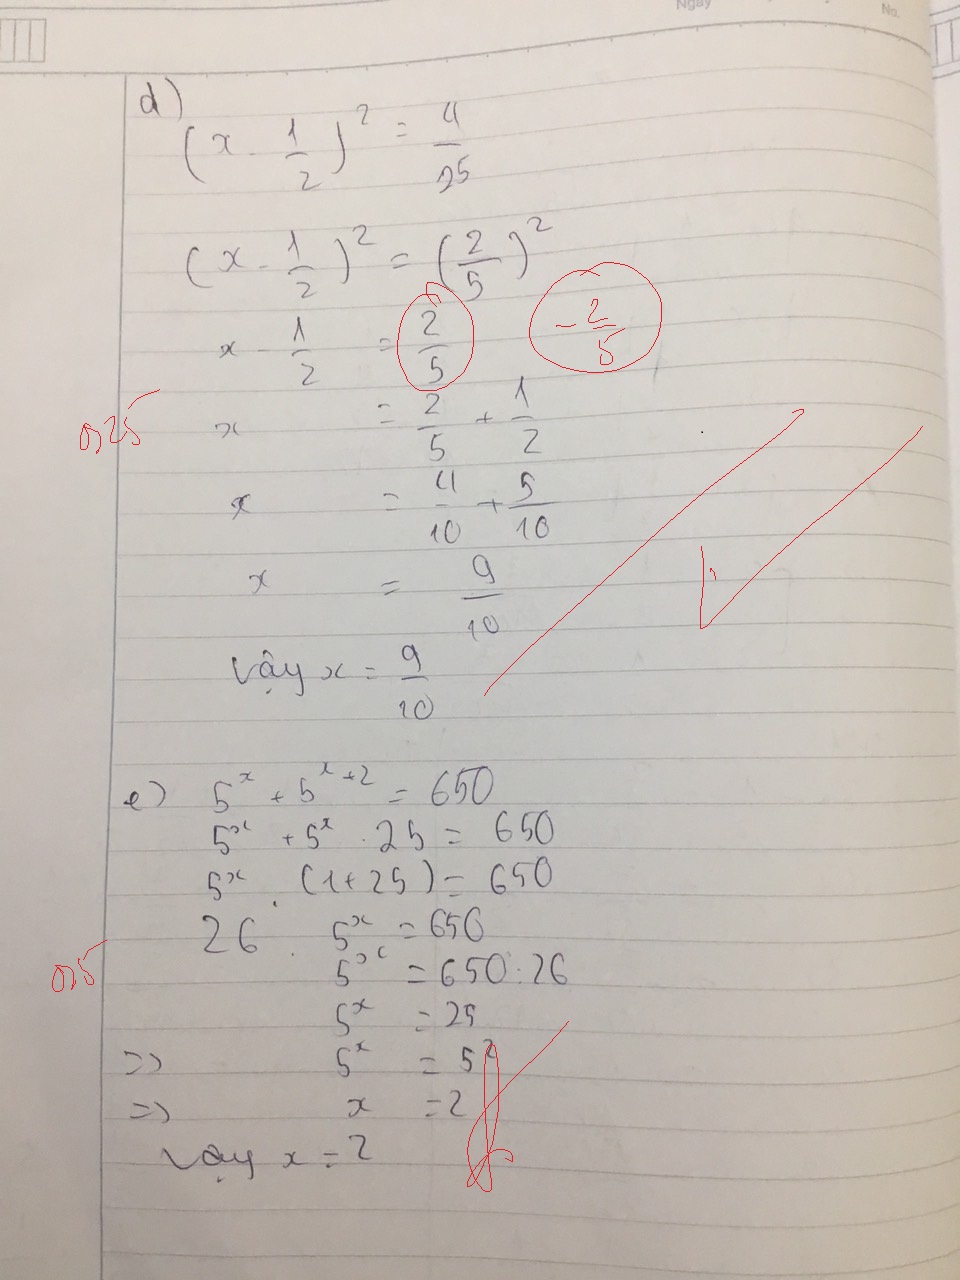 Ngày
No.
d)
(x - 1/2)² = 4/25
(x - 1/2)² = (2/5)²
x - 1/2 = 2/5 -2/5
0,25
x = 2/5 + 1/2
x = 4/10 + 5/10
x = 9/10
Vậy x = 9/10
e) 5^x + 5^{x+2} = 650
5^x + 5^x . 25 = 650
5^x . (1+25) = 650
26 . 5^x = 650
0,5
5^x = 650 : 26
5^x = 25
=> 5^x = 5²
=> x = 2
Vậy x = 2